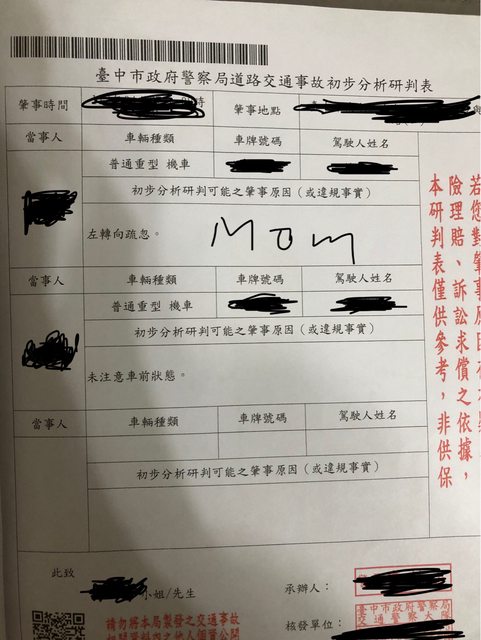 臺中市政府警察局道路交通事故初步分析研判表
肇事時間 時 肇事地點
當事人 車輛種類 車牌號碼 駕駛人姓名
普通重型 機車
初步分析研判可能之肇事原因（或違規事實）
左轉向疏忽。
Mom
當事人 車輛種類 車牌號碼 駕駛人姓名
普通重型 機車
初步分析研判可能之肇事原因（或違規事實）
未注意車前狀態。
當事人 車輛種類 車牌號碼 駕駛人姓名
初步分析研判可能之肇事原因（或違規事實）
若您對肇事原因有
險理賠、訴訟求償之依據，
本研判表僅供參考，非供保
此致
小姐/先生
承辦人：
核發單位：
臺中市政府警察局
交通警察大
請勿將本局製發之交通事故